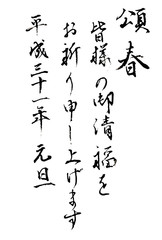 頌春
皆様の御清福を
お祈り申し上げます
平成三十一年 元旦